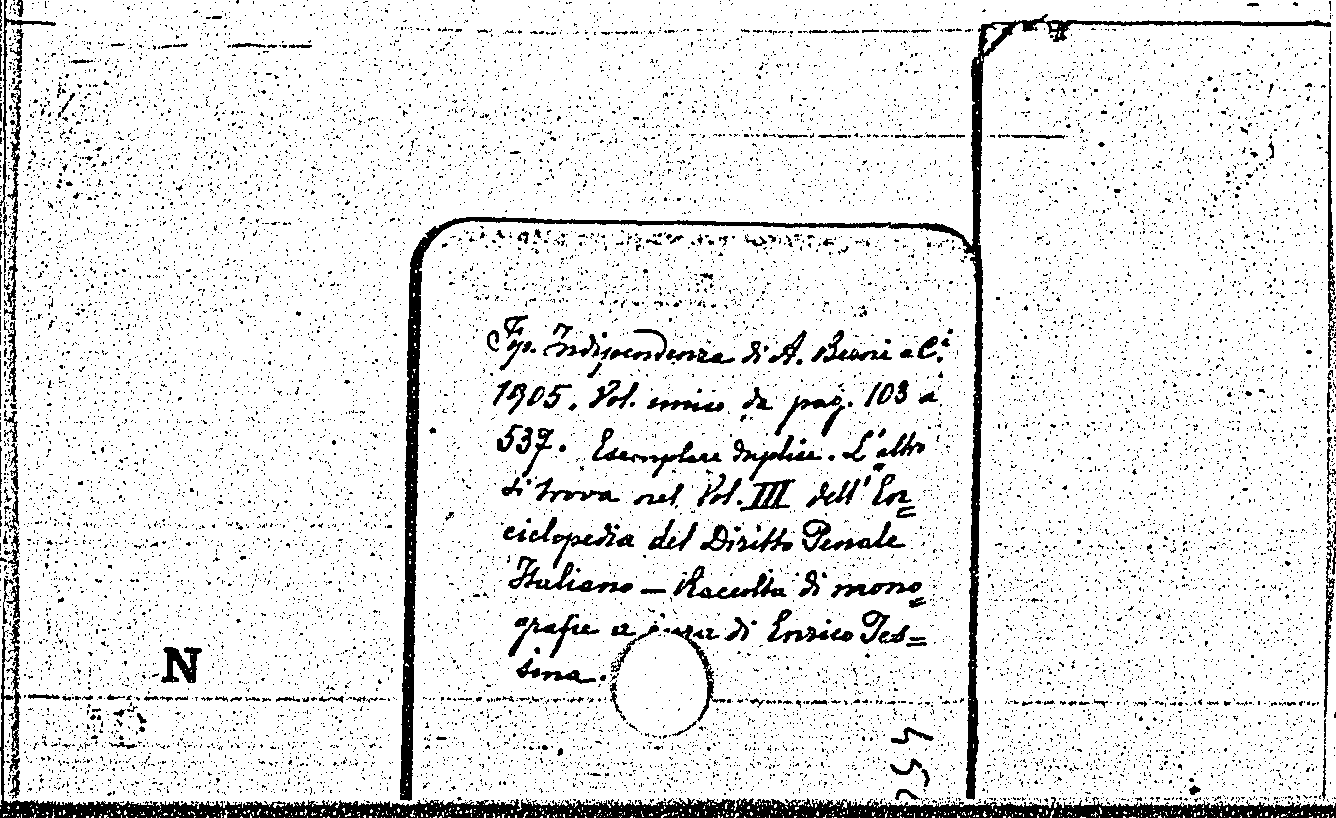 Tip. Indipendenza di A. Berni e C.i
1905. Vol. unico da pag. 103 a
537. Esemplare duplice. L'altro
si trova nel Vol. III dell'En=
ciclopedia del Diritto Penale
Italiano — Raccolta di mono=
grafie a cura di Enrico Pes=
sina.
N